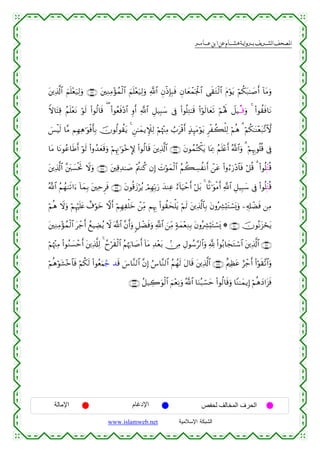 المصحف الشريف برواية هشام عن ابن عامر
وَمَآ أَصَٰبَكُمْ يَوْمَ ٱلْتَقَى ٱلْجَمْعَانِ فَبِإِذْنِ ٱللَّهِ وَلِيَعْلَمَ ٱلْمُؤْمِنِينَ وَلِيَعْلَمَ ٱلَّذِينَ
نَافَقُوا۟ ۚ وَقِيلَ لَهُمْ تَعَالَوْا۟ قَٰتِلُوا۟ فِى سَبِيلِ ٱللَّهِ أَوِ ٱدْفَعُوا۟ ۖ قَالُوا۟ لَوْ نَعْلَمُ قِتَالًا
لَّٱتَّبَعْنَٰكُمْ ۗ هُمْ لِلْكُفْرِ يَوْمَئِذٍ أَقْرَبُ مِنْهُمْ لِلْإِيمَٰنِ ۚ يَقُولُونَ بِأَفْوَٰهِهِم مَّا لَيْسَ
فِى قُلُوبِهِمْ ۗ وَٱللَّهُ أَعْلَمُ بِمَا يَكْتُمُونَ ٱلَّذِينَ قَالُوا۟ لِإِخْوَٰنِهِمْ وَقَعَدُوا۟ لَوْ أَطَاعُونَا مَا
قُتِّلُوا۟ ۗ قُلْ فَٱدْرَءُوا۟ عَنْ أَنفُسِكُمُ ٱلْمَوْتَ إِن كُنتُمْ صَٰدِقِينَ وَلَا تَحْسَبَنَّ ٱلَّذِينَ
قُتِلُوا۟ فِى سَبِيلِ ٱللَّهِ أَمْوَٰتًۢا ۚ بَلْ أَحْيَآءٌ عِندَ رَبِّهِمْ يُرْزَقُونَ فَرِحِينَ بِمَآ ءَاتَىٰهُمُ ٱللَّهُ
مِن فَضْلِهِۦ وَيَسْتَبْشِرُونَ بِٱلَّذِينَ لَمْ يَلْحَقُوا۟ بِهِم مِّنْ خَلْفِهِمْ أَلَّا خَوْفٌ عَلَيْهِمْ وَلَا هُمْ
يَحْزَنُونَ ۞ يَسْتَبْشِرُونَ بِنِعْمَةٍ مِّنَ ٱللَّهِ وَفَضْلٍ وَأَنَّ ٱللَّهَ لَا يُضِيعُ أَجْرَ ٱلْمُؤْمِنِينَ
ٱلَّذِينَ ٱسْتَجَابُوا۟ لِلَّهِ وَٱلرَّسُولِ مِنۢ بَعْدِ مَآ أَصَابَهُمُ ٱلْقَرْحُ ۚ لِلَّذِينَ أَحْسَنُوا۟ مِنْهُمْ
وَٱتَّقَوْا۟ أَجْرٌ عَظِيمٌ ٱلَّذِينَ قَالَ لَهُمُ ٱلنَّاسُ إِنَّ ٱلنَّاسَ قَد جَّمَعُوا۟ لَكُمْ فَٱخْشَوْهُمْ
فَزَادَهُمْ إِيمَٰنًا وَقَالُوا۟ حَسْبُنَا ٱللَّهُ وَنِعْمَ ٱلْوَكِيلُ
الحرف المخالف لحفص الإدغام الإمالة
الشبكة الإسلامية www.islamweb.net